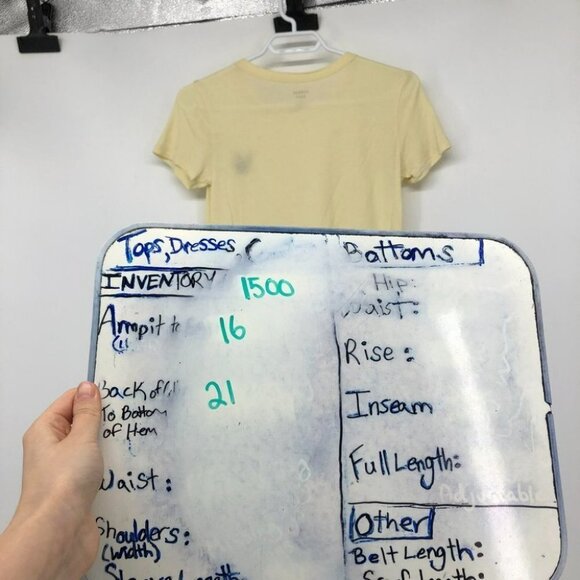 Tops, Dresses,
INVENTORY 1500
Armpit to 16
Back of
To Bottom 21
of Hem
Waist:
Shoulders:
(width)
Sleeve Length
Bottoms
Hip:
Waist:
Rise:
Inseam
Full Length:
Adjustable
Other
Belt Length:
Scarf Length: